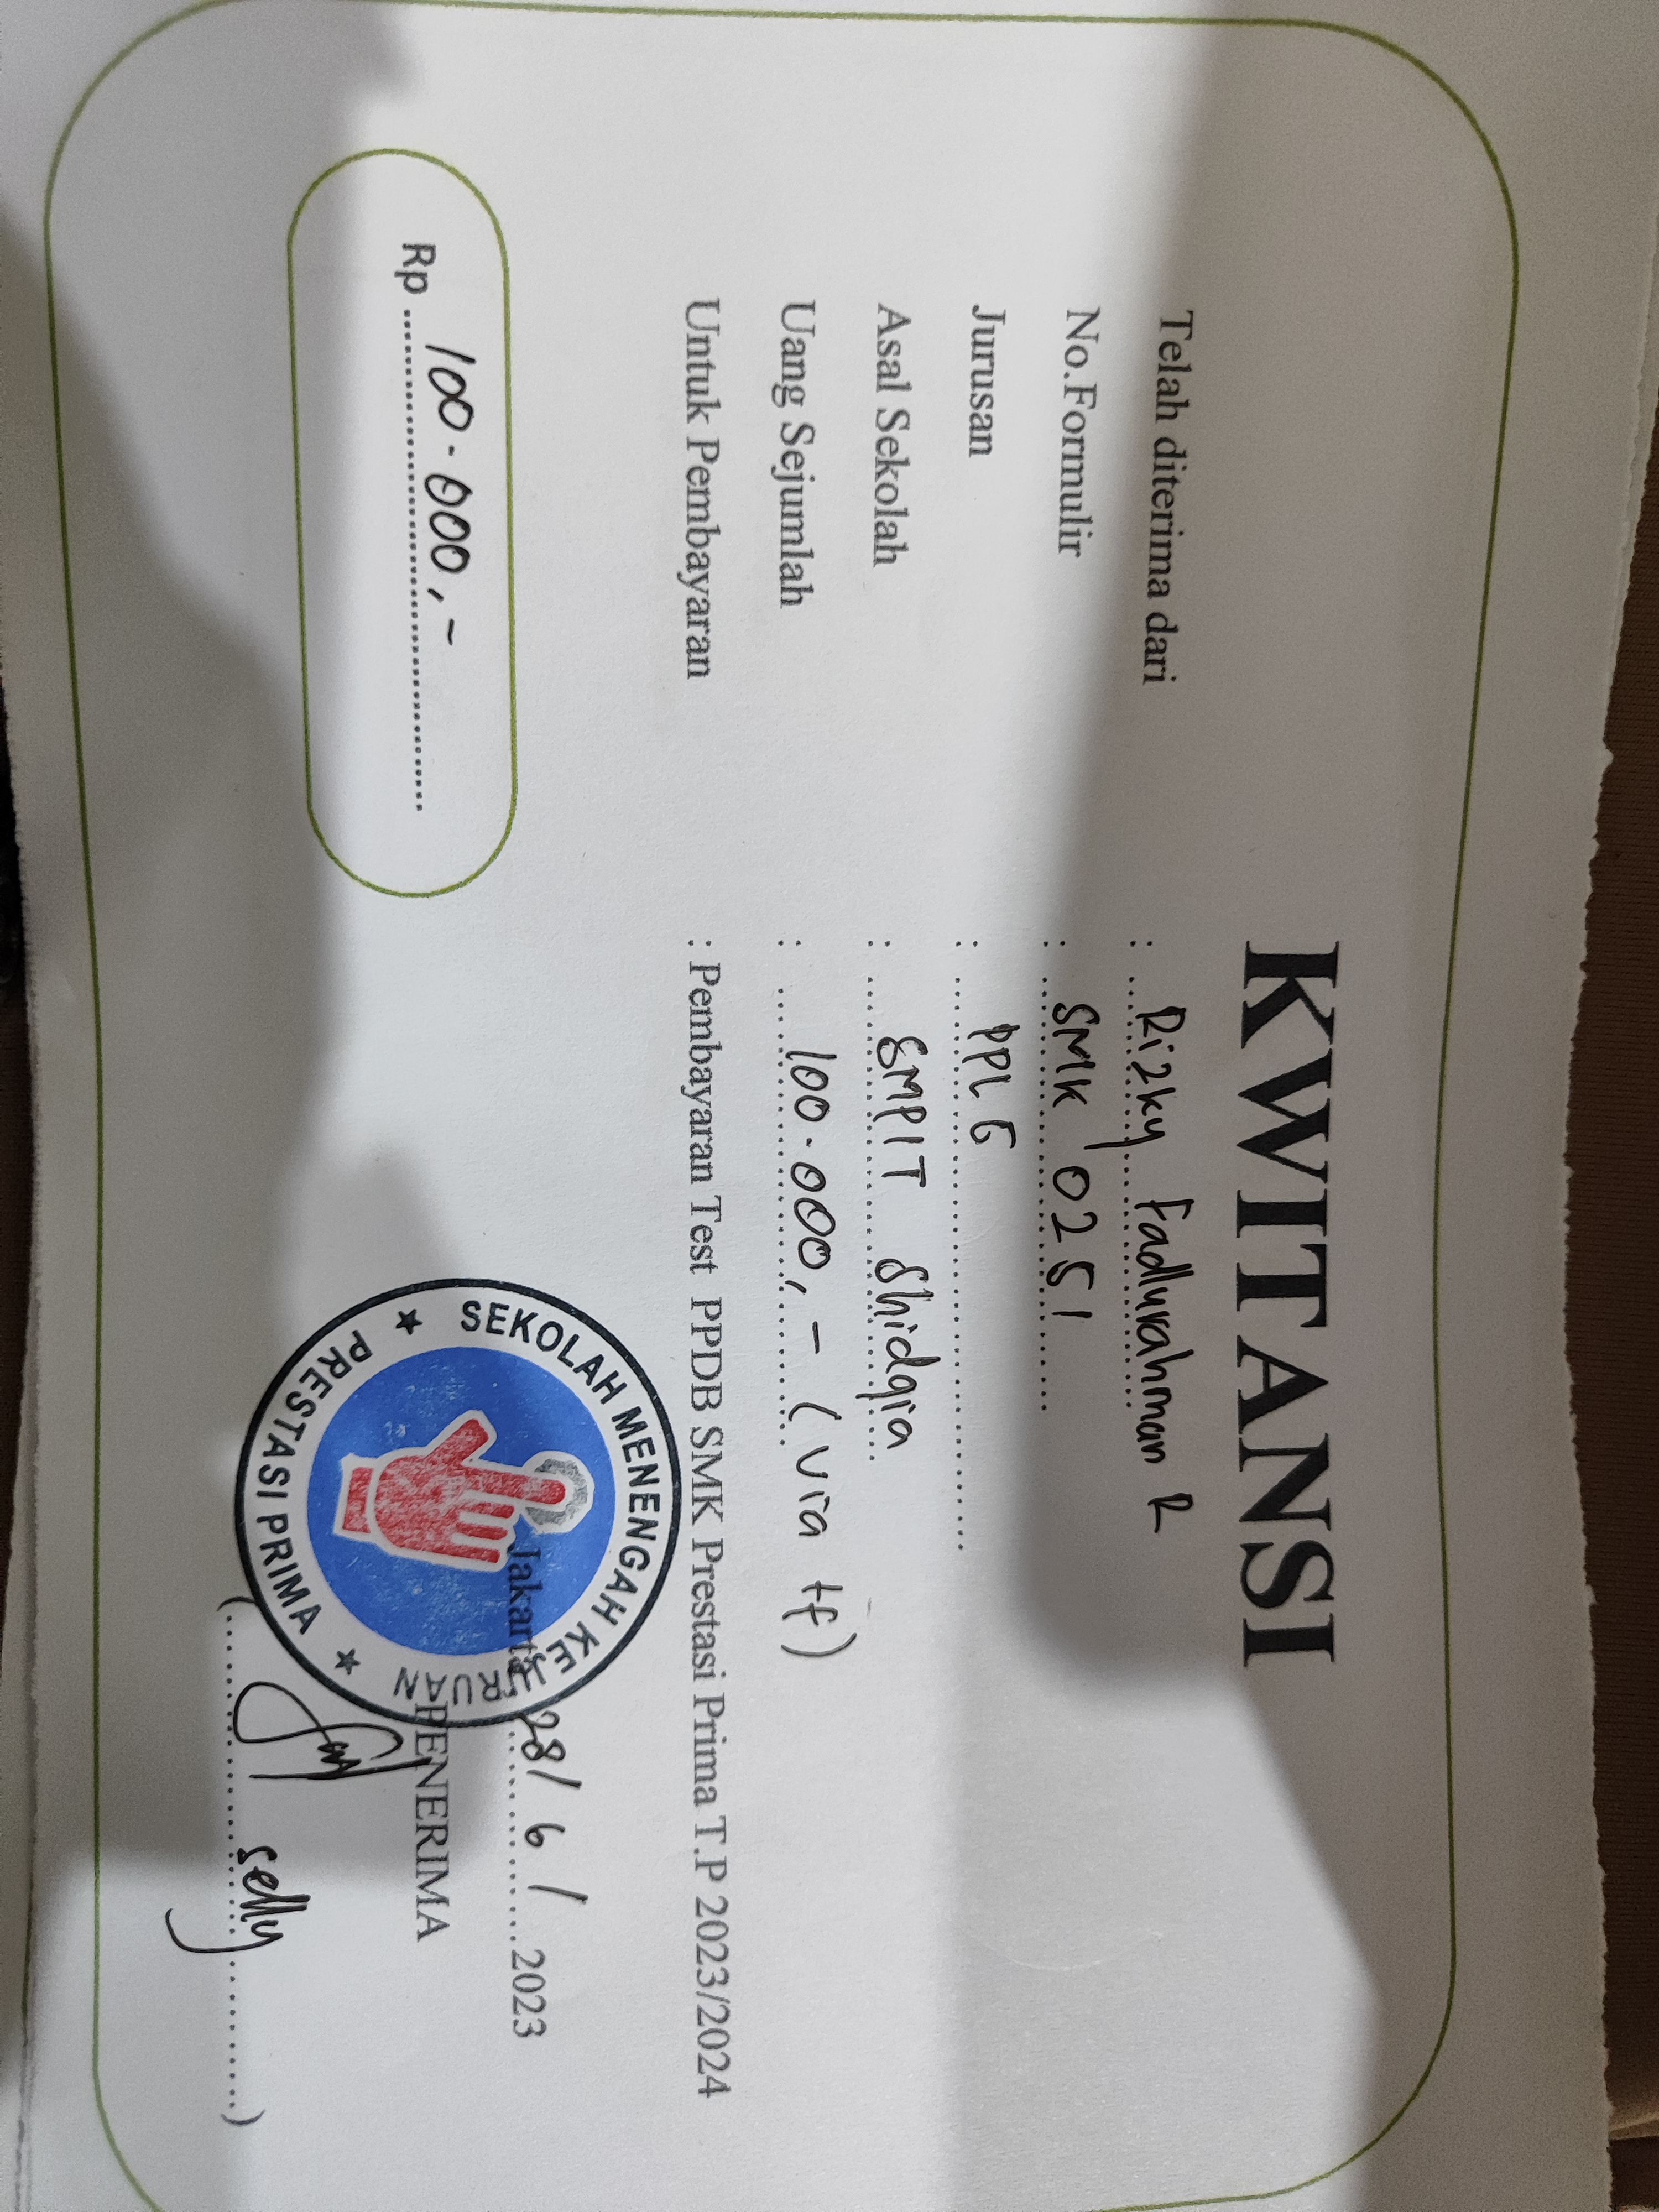 KWITANSI
Telah diterima dari : Rizky Fadlurahman R
No.Formulir : SMK 0251
Jurusan : PPLG
Asal Sekolah : SMPIT Shidqia
Uang Sejumlah : 100.000,- (via tf)
Untuk Pembayaran : Pembayaran Test PPDB SMK Prestasi Prima T.P 2023/2024
Jakarta, 28/6/ 2023
Rp 100.000,-
PENERIMA
SEKOLAH MENENGAH KEJURUAN
PRESTASI PRIMA
(Selly)